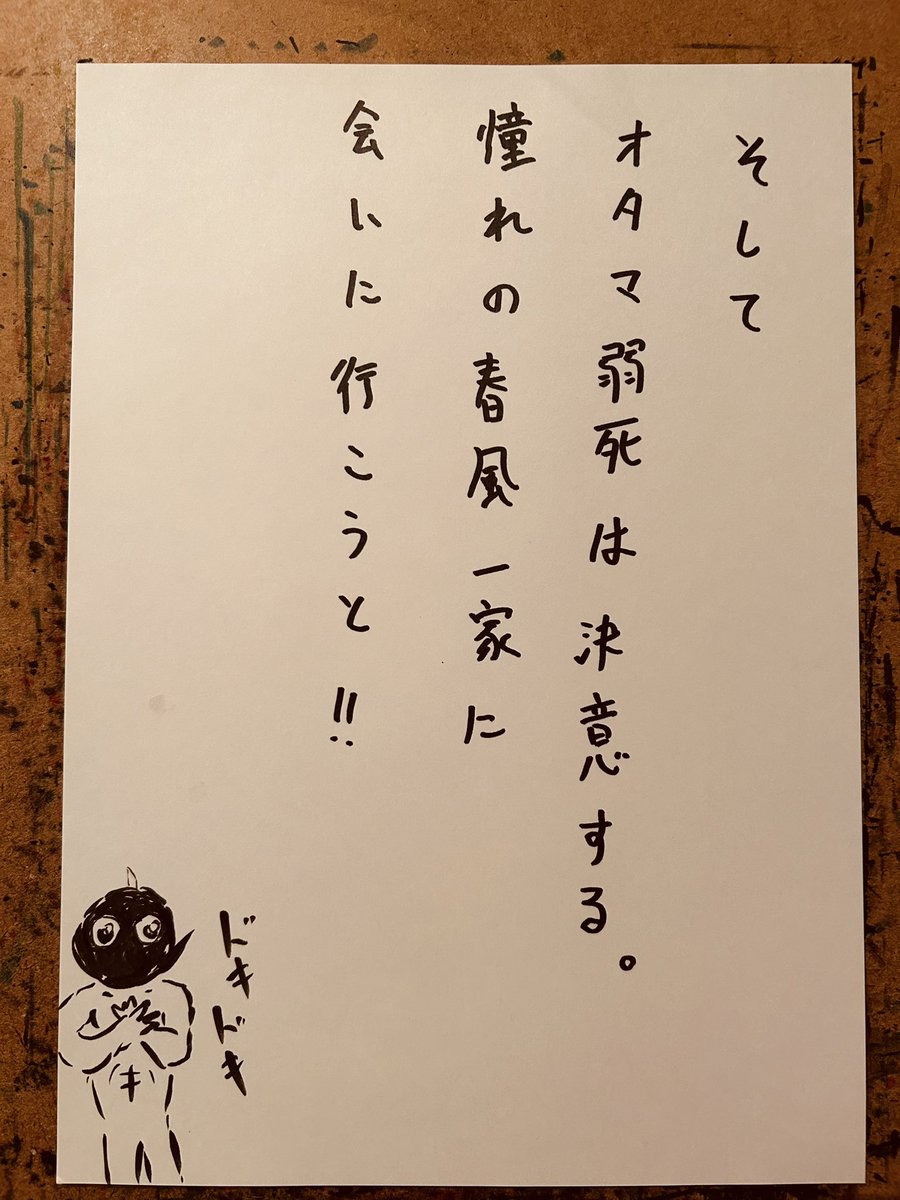 そして
オタマ弱死は決意する。
憧れの春風一家に
会いに行こうと!!
ドキドキ